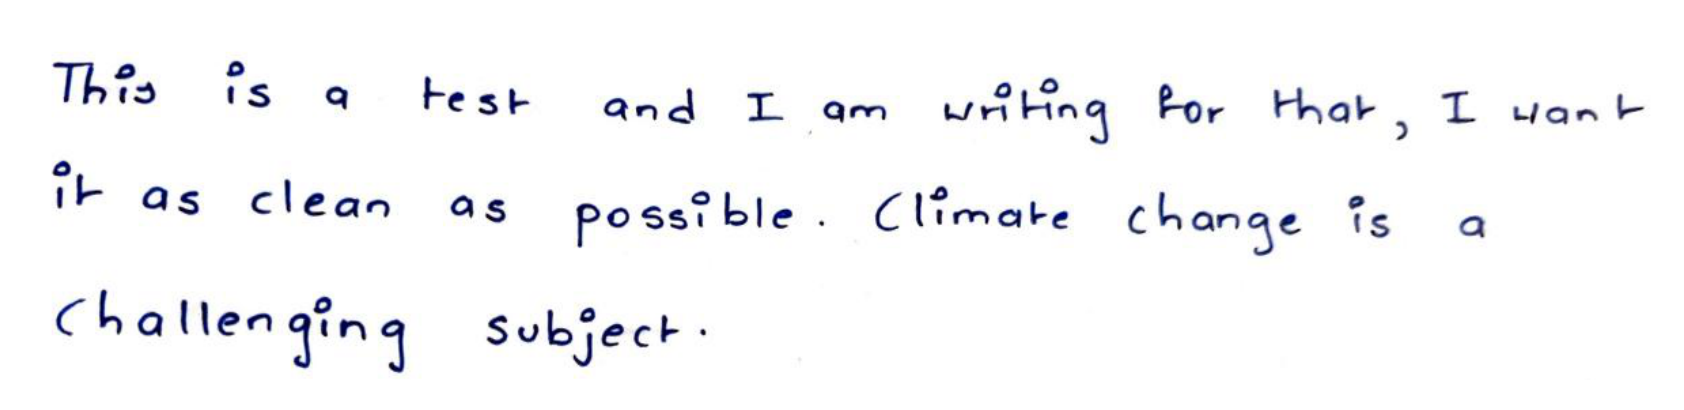 This is a test and I am writing for that, I want
it as clean as possible. Climate change is a
challenging subject.